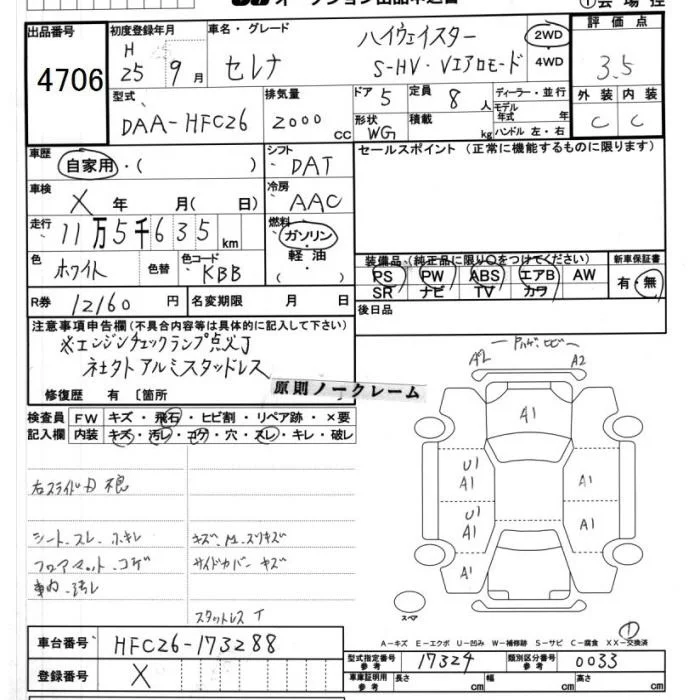 ①会場控
出品番号 4706
初度登録年月 H 25 9月
車名・グレード セレナ ハイウェイスター S-HV・Vエアロモード
2WD・4WD
評価点 3.5
外装 内装
C C
型式 DAA-HFC26
排気量 2000 cc
ドア 5 定員 8 人
形状 WG 積載 kg
ディーラー・並行
モデル年式 年
ハンドル 左・右
車歴 自家用・( )
シフト DAT
セールスポイント (正常に機能するものに限ります)
車検 X 年 月( 日)
冷房 AAC
走行 11万5千635 km
燃料 ガソリン・軽油・( )
色 ホワイト 色替 色コード KBB
装備品 (純正品に限り○をつけてください)
新車保証書
PS PW ABS エアB AW
SR ナビ TV カワ
有・無
R券 12160 円 名変期限 月 日
後日品
注意事項申告欄 (不具合内容等は具体的に記入して下さい)
※エンジンチェックランプ点灯
社外アルミスタッドレス
修復歴 有 〔箇所
原則ノークレーム
検査員記入欄
FW キズ・飛石・ヒビ割・リペア跡・×要
内装 キズ・汚レ・コゲ・穴・スレ・キレ・破レ
右スライドD 不良
シート.スレ.
キズ.
フロアマット.コゲ
サイドカバー キズ
車内.汚レ
スタットレス T
A2 A2
A1
U1 A1
A1
U1 A1
A1
A1
スペア
①
A-キズ E-エクボ U-凹み W-補修跡 S-サビ C-腐食 XX-交換済
車台番号 HFC26-173288
型式指定番号参考 17324 類別区分番号参考 0033
登録番号 X
車庫証明用参考 長さ cm 幅 cm 高さ cm